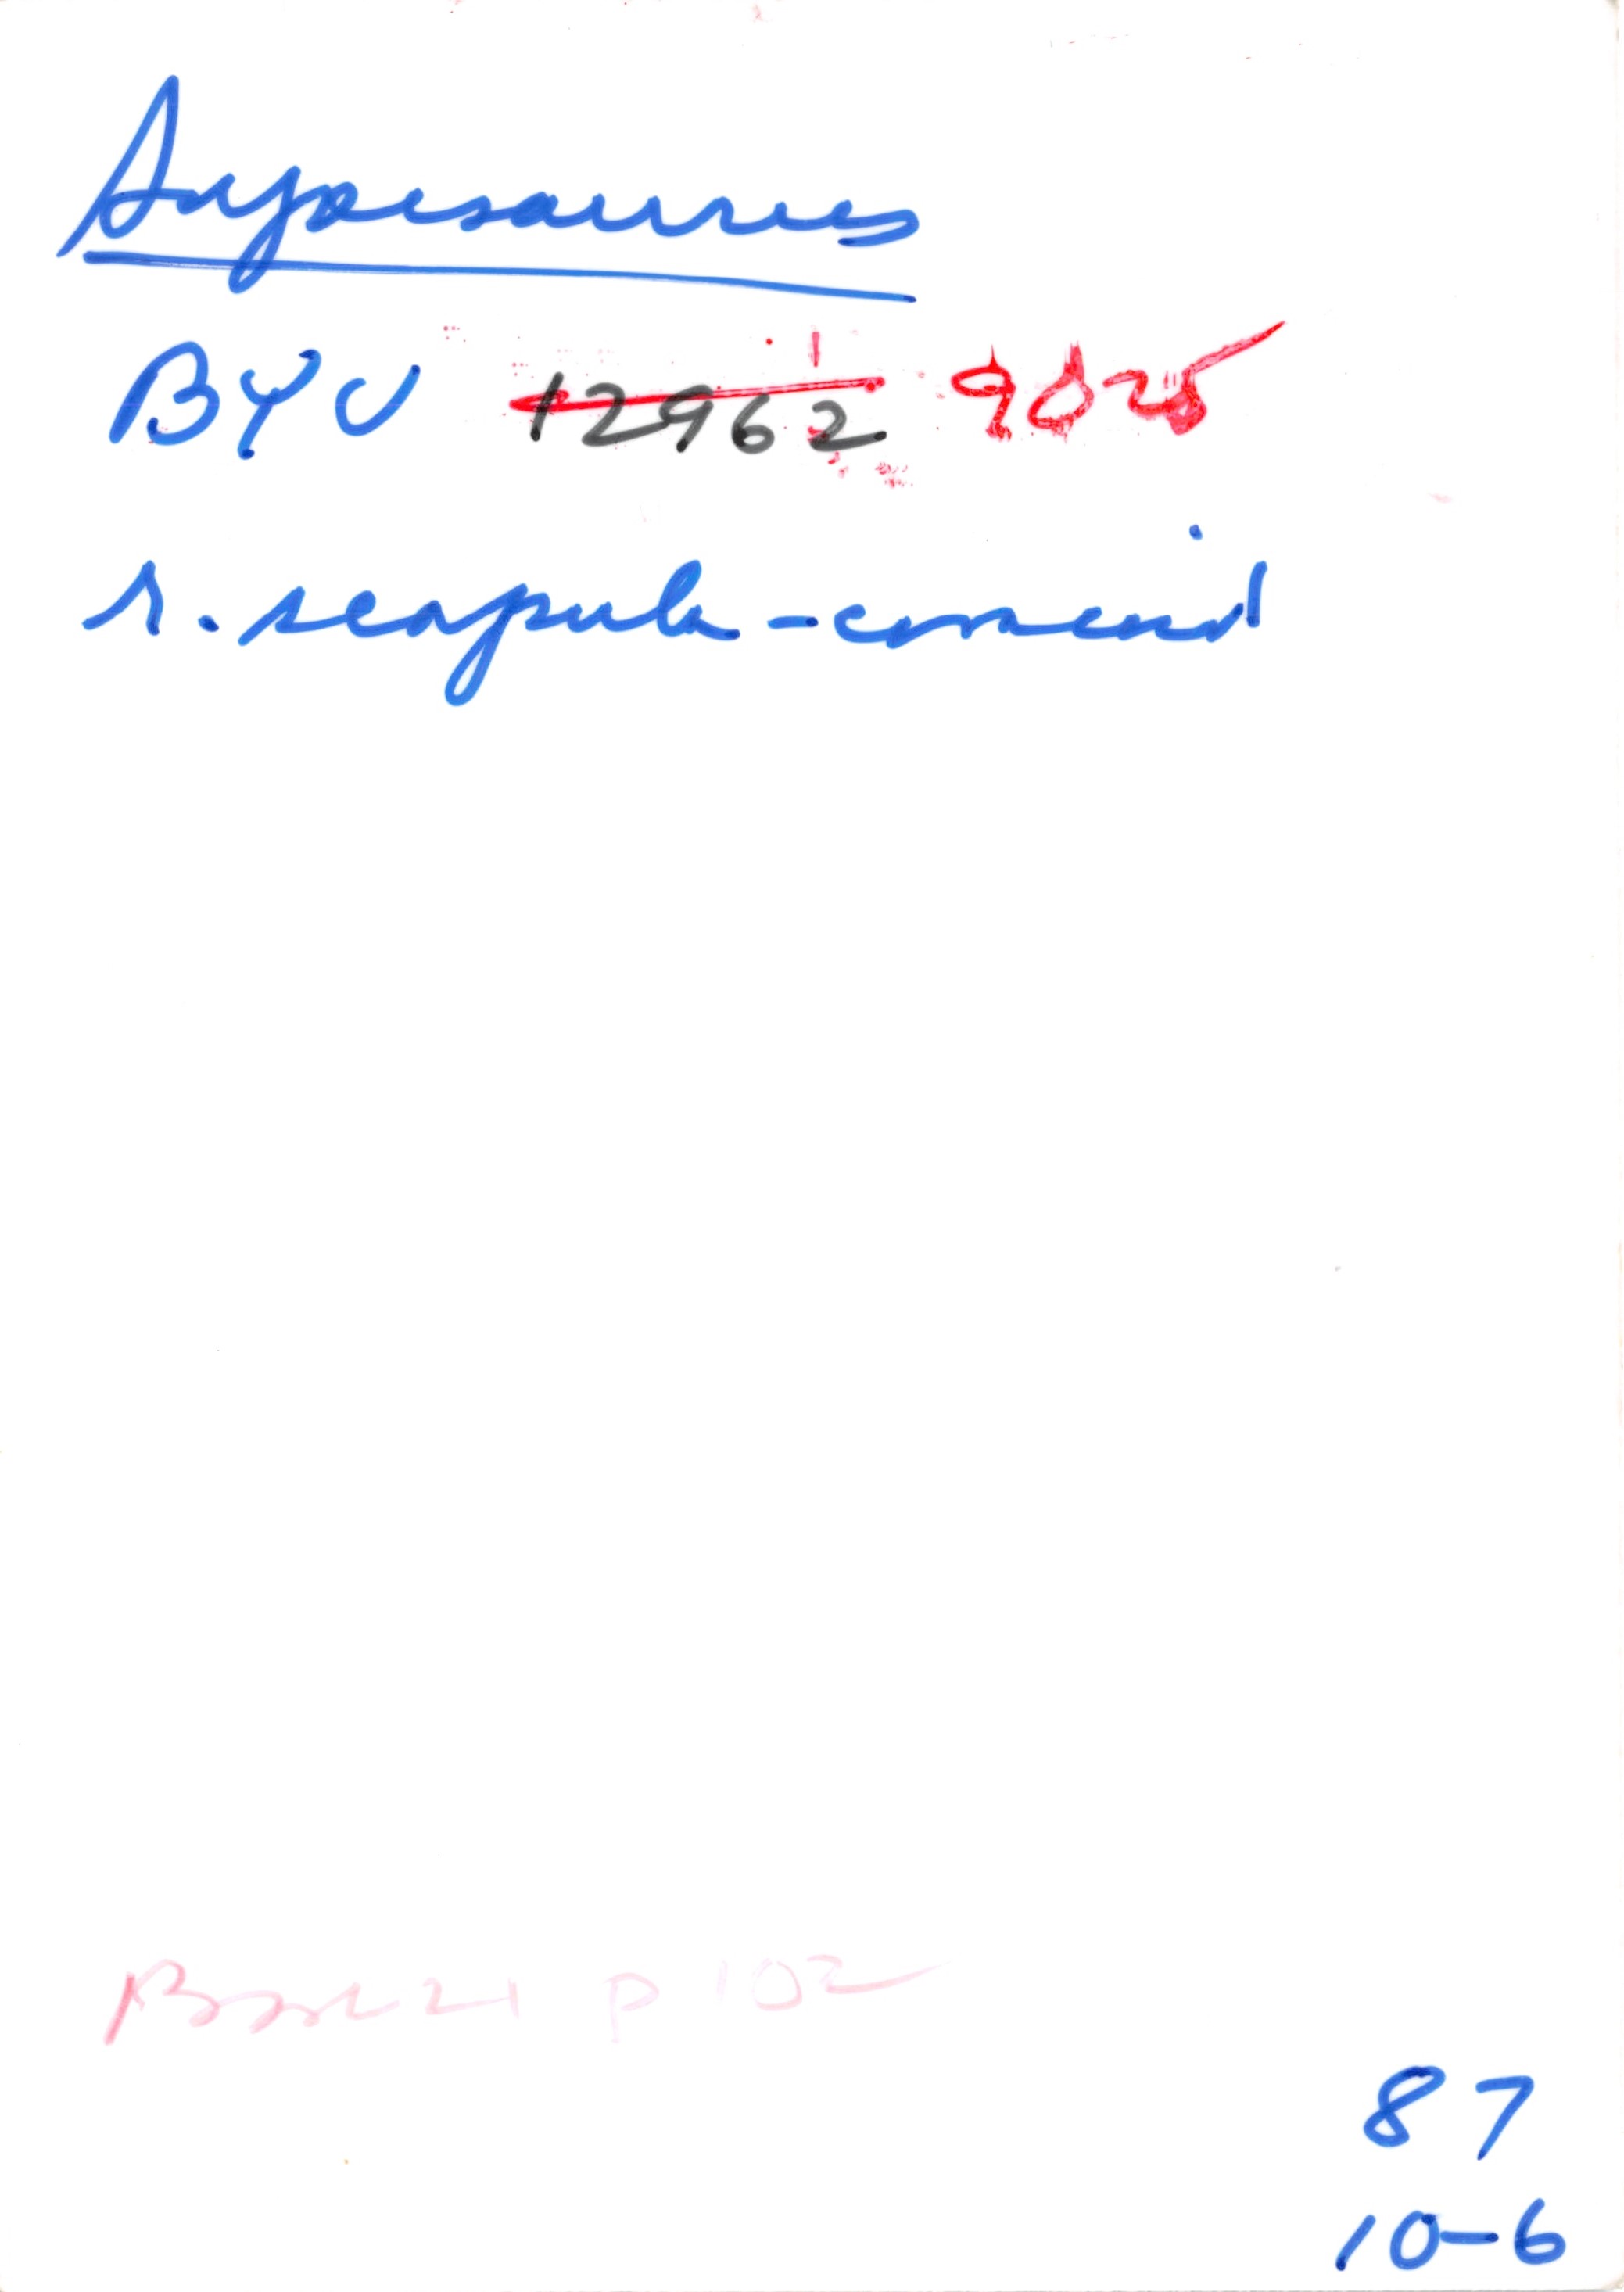 Supersaurus
BYU 12962 9025
r. scapula-coracoid
Book 21 p 102
87
10-6